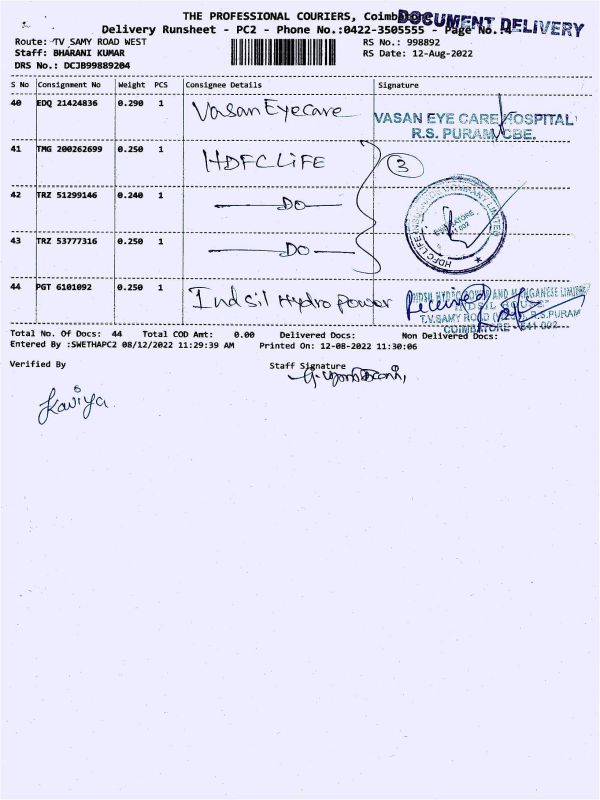 THE PROFESSIONAL COURIERS, Coimbatore
DOCUMENT DELIVERY
Delivery Runsheet - PC2 - Phone No.:0422-3505555 - Page No.:4
Route: TV SAMY ROAD WEST
RS No.: 998892
Staff: BHARANI KUMAR
RS Date: 12-Aug-2022
DRS No.: DCJB99889204
S No Consignment No Weight PCS Consignee Details Signature
40 EDQ 21424836 0.290 1 Vasan Eyecare
VASAN EYE CARE HOSPITAL
R.S. PURAM, CBE.
41 TMG 200262699 0.250 1 HDFC LIFE 3
42 TRZ 51299146 0.240 1 DO
43 TRZ 53777316 0.250 1 DO
44 PGT 6101092 0.250 1 Indsil Hydro power Received
INDSIL HYDRO POWER AND MANGANESE LIMITED
INDSIL HOUSE
T.V.SAMY ROAD (WEST), R.S.PURAM
COIMBATORE - 641 002
Total No. Of Docs: 44 Total COD Amt: 0.00 Delivered Docs: Non Delivered Docs:
Entered By :SWETHAPC2 08/12/2022 11:29:39 AM Printed On: 12-08-2022 11:30:06
Verified By Staff Signature
Kaviya